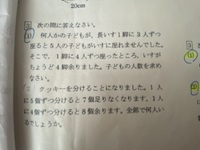 20cm
2 次の問に答えなさい。
(1) 何人かの子どもが、長いす1脚に3人ずつ
座ると5人の子どもがいすに座れませんでした。
そこで、1脚に4人ずつ座ったところ、いすが
ちょうど4脚余りました。子どもの人数を求め
なさい。
クッキーを分けることになりました。1人
に8個ずつ分けると7個足りなくなります。1人
に5個ずつ分けると8個余ります。全部で何人い
るでしょうか。